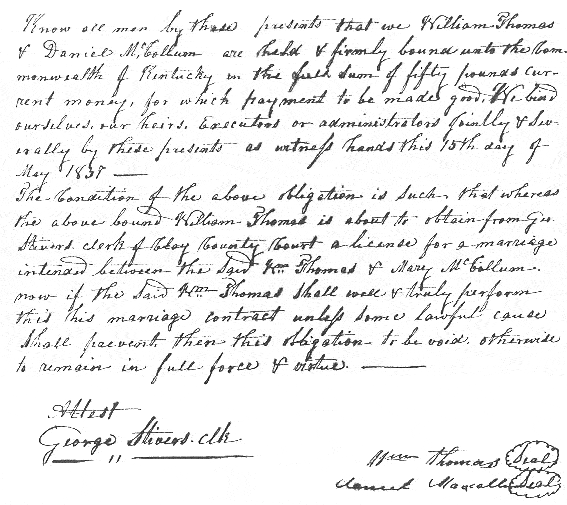 Know all men by these presents that we William Thomas
& Daniel McCollum are held & firmly bound unto the Com-
monwealth of Kentucky in the full sum of fifty pounds cur-
rent money, for which payment to be made good. We bind
ourselves, our heirs, Executors or administrators Jointly & Sev-
erally by these presents as witness hands this 15th day of
May 1837 —
The Condition of the above obligation is such that whereas
the above bound William Thomas is about to obtain from Geo
Stivers clerk of Clay County Court a license for a marriage
intended between the said Wm Thomas & Mary McCollum.
now if the said Wm Thomas shall well & truly perform
this this marriage contract unless some lawful cause
shall prevent then this obligation to be void otherwise
to remain in full force & virtue. —
Attest
George Stivers clk
Wm Thomas Seal
Daniel Seal